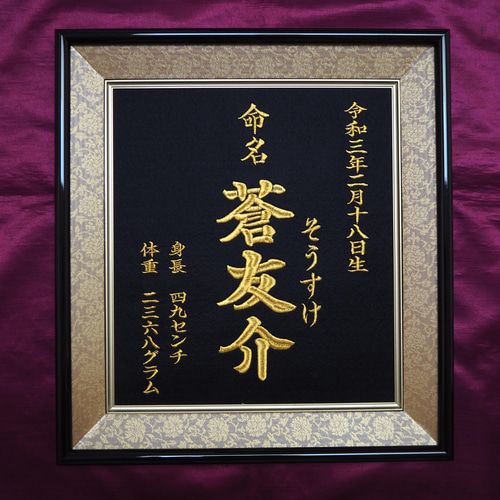 令和三年二月十八日生
そうすけ
命名
蒼友介
身長 四九センチ
体重 二三六八グラム